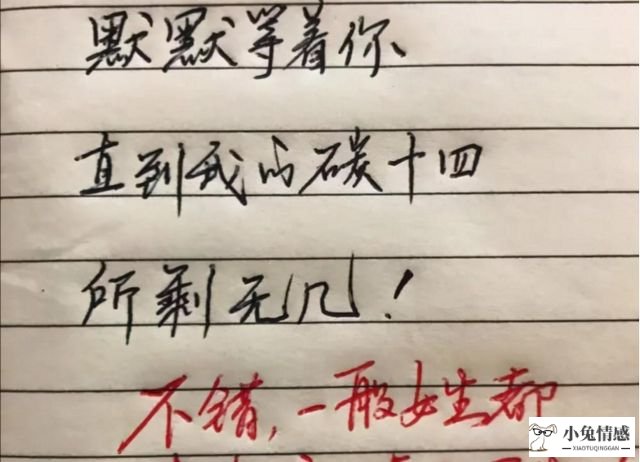 默默等着你
直到我的碳十四
所剩无几！
不错，一般女生都
小兔情感
XIAOTUQINGGAN